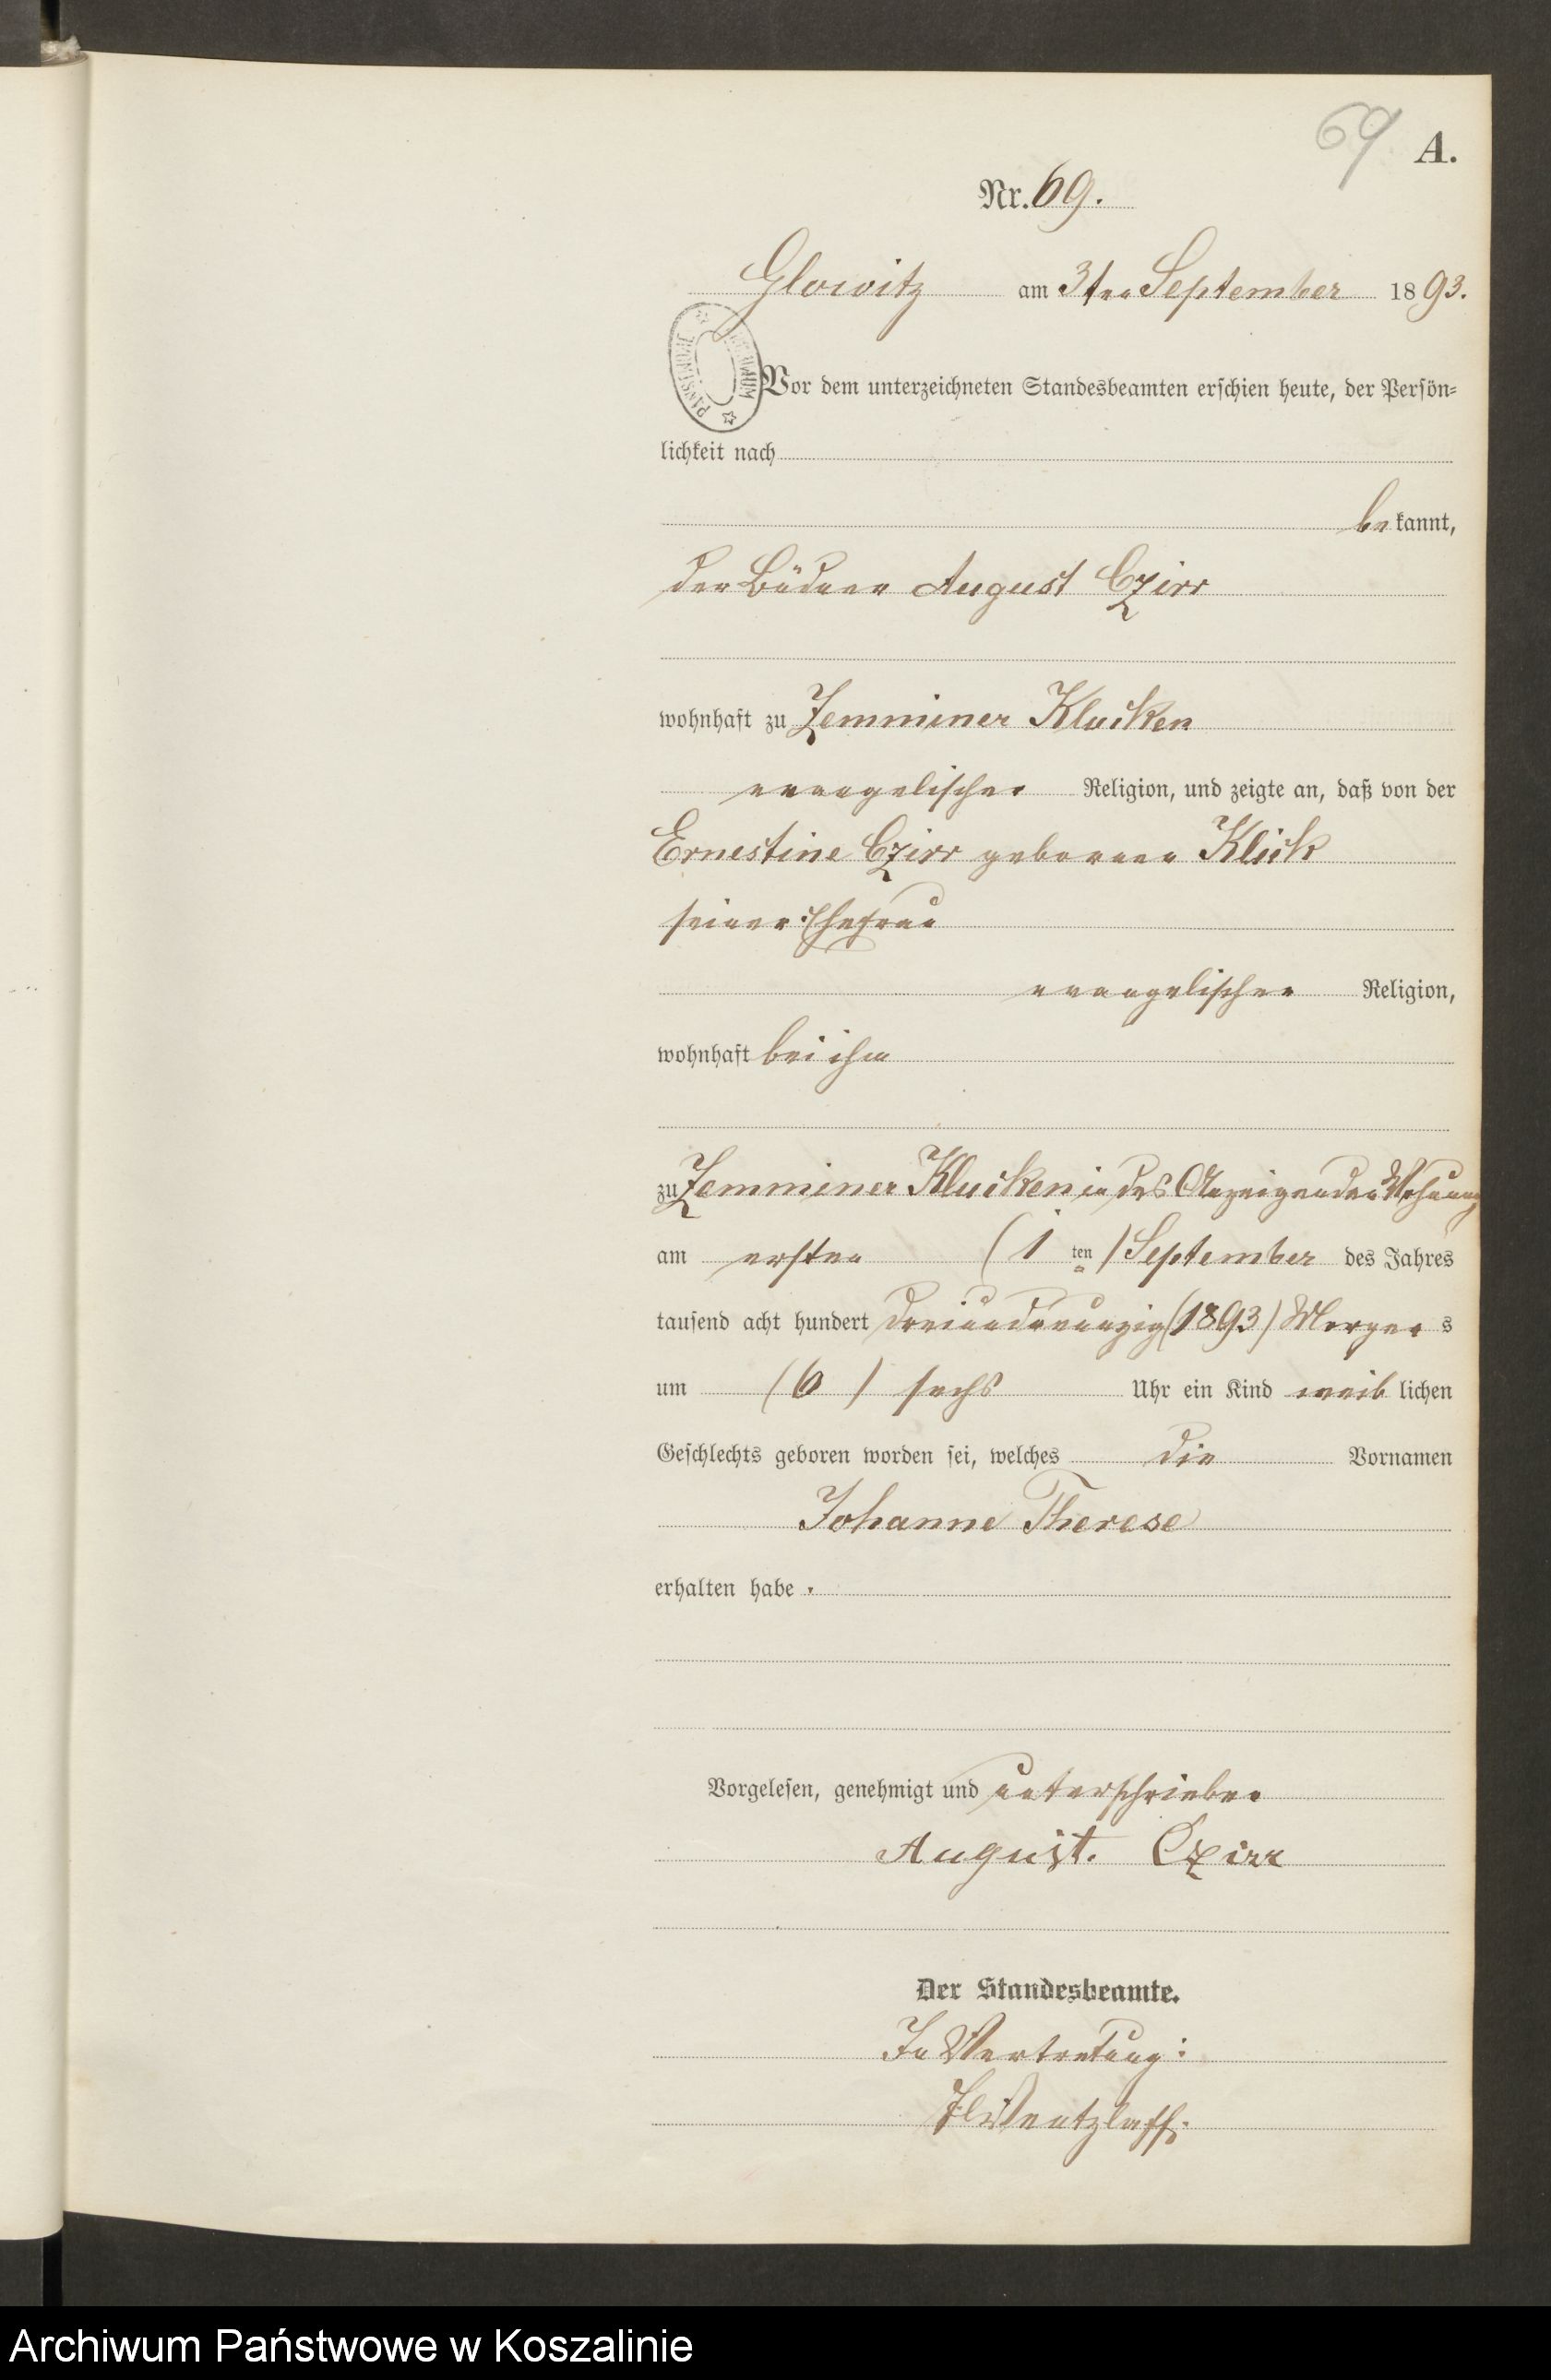 69 A.
Nr. 69.
Glowitz am 3ten September 1893.
Vor dem unterzeichneten Standesbeamten erschien heute, der Persön=
lichkeit nach
bekannt,
der Büdner August Czirr
wohnhaft zu Zemminer Klucken
evangelischer Religion, und zeigte an, daß von der
Ernestine Czirr geborenen Klick
seiner Ehefrau
evangelischer Religion,
wohnhaft bei ihm
zu Zemminer Klucken in des Anzeigenden Wohnung
am ersten (1 ten) September des Jahres
tausend acht hundert dreiundneunzig (1893) Morgens
um (6) sechs Uhr ein Kind weiblichen
Geschlechts geboren worden sei, welches die Vornamen
Johanne Therese
erhalten habe.
Vorgelesen, genehmigt und unterschrieben
August. Czirr
Der Standesbeamte.
In Vertretung:
Wentzlaff.
Archiwum Państwowe w Koszalinie